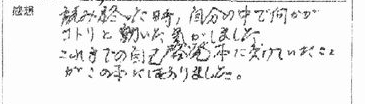 感想
読み終った時、自分の中で何かが
コトリと動いた気がしました。
これまでの自己啓発本に欠けていたこと
がこの本にはありました。